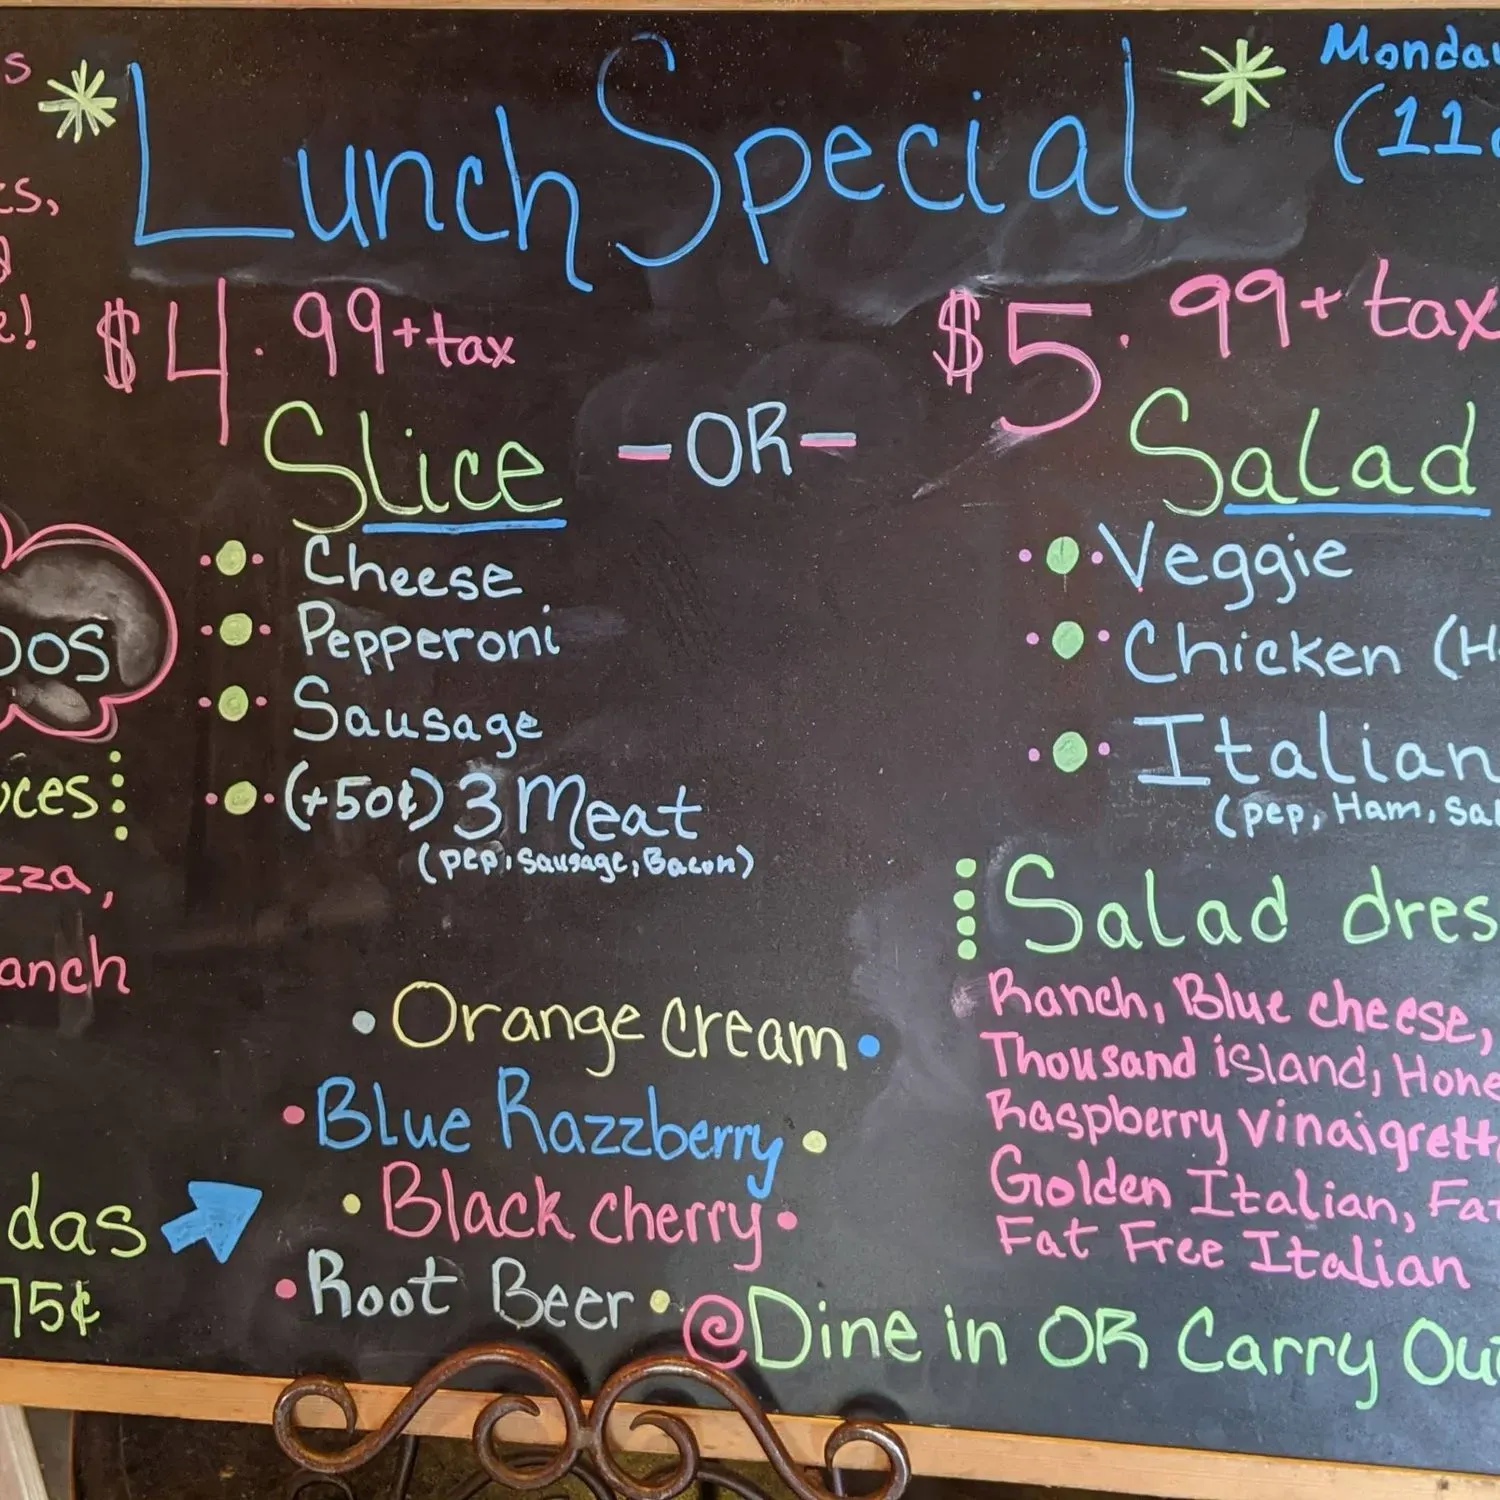 s
Lunch Special
Monday
(11
ts,
e!
$4.99+tax
$5.99+tax
Slice
-OR-
Salad
Cheese
Pepperoni
Sausage
(+50¢) 3 Meat
(pep, Sausage, Bacon)
Veggie
Chicken (H
Italian
(pep, Ham, Sal
oos
uces:
zza,
anch
Salad dres
Ranch, Blue cheese,
Thousand island, Hone
Raspberry vinaigrett
Golden Italian, Fat
Fat Free Italian
Orange Cream
Blue Razzberry
Black Cherry
Root Beer
das
75¢
@Dine in OR Carry Out